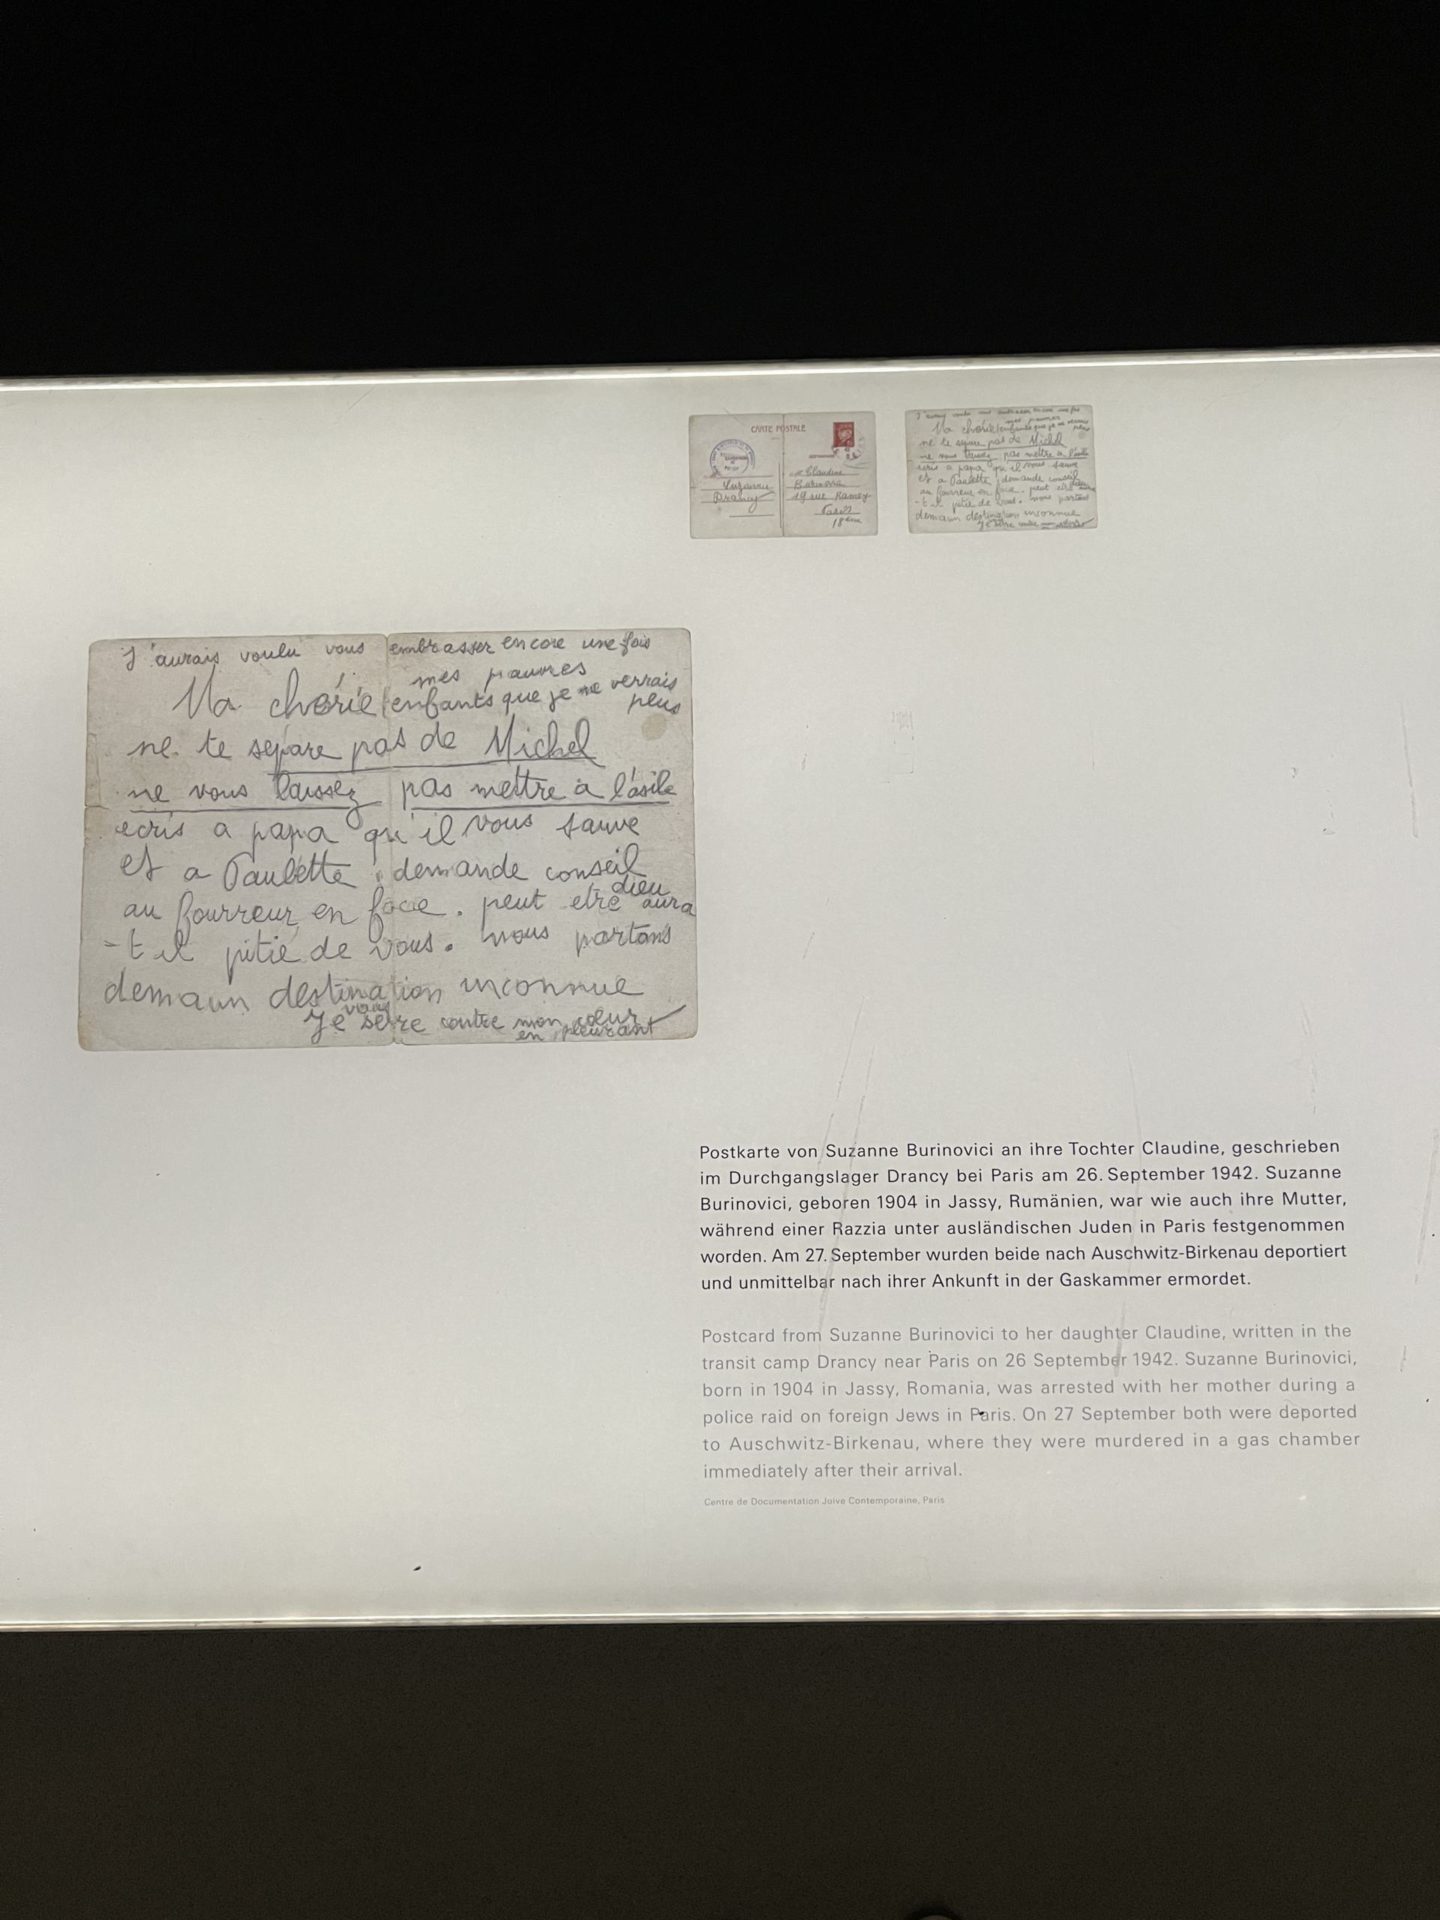 CARTE POSTALE
Suzanne
Drancy
Claudine
19 rue Ramey
Paris
18ème
J'aurais voulu vous embrasser encore une fois
mes pauvres
Ma chérie enfants que je ne verrais
plus
ne te separe pas de Michel
ne vous laissez pas mettre à l'asile
ecris a papa qu'il vous sauve
et a Paulette, demande conseil
au fourreur en face. peut etre dieu aura
-t il pitié de vous. nous partons
demain destination inconnue
Je vous serre contre mon cœur
en pleurant
Postkarte von Suzanne Burinovici an ihre Tochter Claudine, geschrieben
im Durchgangslager Drancy bei Paris am 26. September 1942. Suzanne
Burinovici, geboren 1904 in Jassy, Rumänien, war wie auch ihre Mutter,
während einer Razzia unter ausländischen Juden in Paris festgenommen
worden. Am 27. September wurden beide nach Auschwitz-Birkenau deportiert
und unmittelbar nach ihrer Ankunft in der Gaskammer ermordet.
Postcard from Suzanne Burinovici to her daughter Claudine, written in the
transit camp Drancy near Paris on 26 September 1942. Suzanne Burinovici,
born in 1904 in Jassy, Romania, was arrested with her mother during a
police raid on foreign Jews in Paris. On 27 September both were deported
to Auschwitz-Birkenau, where they were murdered in a gas chamber
immediately after their arrival.
Centre de Documentation Juive Contemporaine, Paris